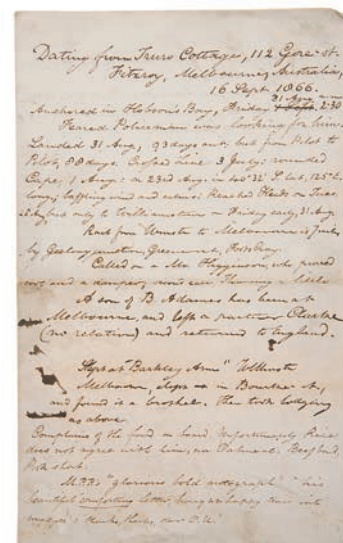 Dating from Truro Cottages, 112 Gore-st.
Fitzroy, Melbourne, Australia,
16 Sept. 1866.
31 Aug.
Anchored in Hobson's Bay, Friday 2.30
Feared Policeman was looking for him.
Landed 31 Aug, 93 days out; but from Pilot to
Pilot, 88 days. Crossed Line 3 July: rounded
Cape, 1 Aug: on 23rd Aug. in 40° 32' S. lat, 125°
long; baffling wind and Reached Heads on Tues.
but only to Williamstown on Friday early, 31 Aug.
Rail from to Melbourne is
by Geelong junction, Greenwich, Footscray.
Called on a Mr. Higginson, who proved
not and a damper;
A son of B. Adames has been at
Melbourne, and left a partner Clarke
(no relation) and returned to England.
Slept at "Barkley Arms"
Melbourne, slept in Bourke St,
and found it a brothel. Then took lodging
as above.
Complains of the food on board. Unfortunately Rice
does not agree with him, nor Oatmeal. Beef bad,
Pork short.
"glorious bold autograph" - his
beautiful comforting letter,